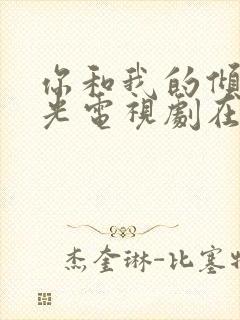 你和我的傾
光電視劇在
杰奎琳-比塞特